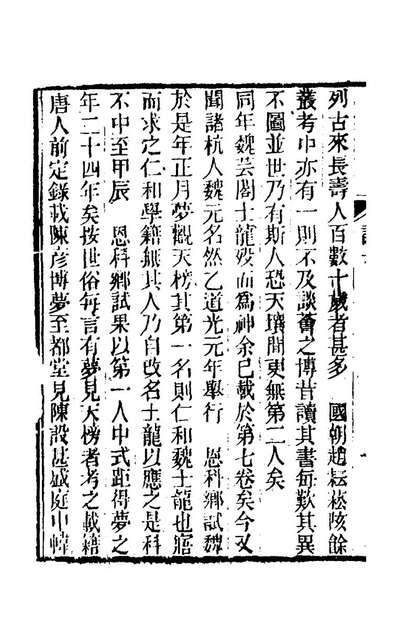 列古來長壽人百數十歲者甚多　國朝趙耘菘陔餘
叢考中亦有一則不及談薈之博昔讀其書每歎其異
不圖並世乃有斯人恐天壤間更無第二人矣
同年魏芸閣士龍歿而為神余已載於第七卷矣今又
聞諸杭人魏元名然乙道光元年舉行　恩科鄉試魏
於是年正月夢觀天榜其第一名則仁和魏士龍也寤
而求之仁和學籍無其人乃自改名士龍以應之是科
不中至甲辰　恩科鄉試果以第一人中式距得夢之
年二十四年矣按世俗每言有夢見天榜者考之載籍
唐人前定錄載陳彥博夢至都堂見陳設甚盛庭中幃